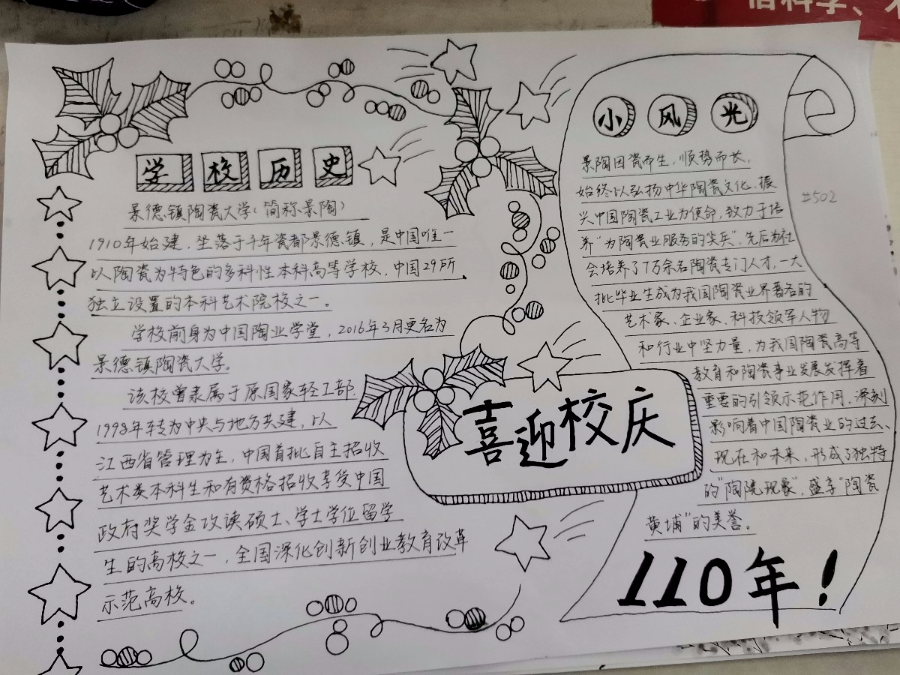 学校历史
景德镇陶瓷大学（简称景陶）
1910年始建，坐落于千年瓷都景德镇，是中国唯一
以陶瓷为特色的多科性本科高等学校，中国29所
独立设置的本科艺术院校之一。
学校前身为中国陶业学堂，2016年3月更名为
景德镇陶瓷大学。
该校曾隶属于原国家轻工部，
1998年转为中央与地方共建，以
江西省管理为主，中国首批自主招收
艺术类本科生和有资格招收享受中国
政府奖学金攻读硕士、学士学位留学
生的高校之一，全国深化创新创业教育改革
示范高校。
喜迎校庆
小风光
景陶因瓷而生，顺势而长，
始终以弘扬中华陶瓷文化、振
兴中国陶瓷工业为使命，致力于培
养“为陶瓷业服务的尖兵”，先后为社
会培养了7万余名陶瓷专门人才，一大
批毕业生成为我国陶瓷业界著名的
艺术家、企业家、科技领军人物
和行业中坚力量，为我国陶瓷高等
教育和陶瓷事业发展发挥着
重要的引领示范作用，深刻
影响着中国陶瓷业的过去、
现在和未来，形成了独特
的“陶院现象”，盛享“陶瓷
黄埔”的美誉。
110年！
#502